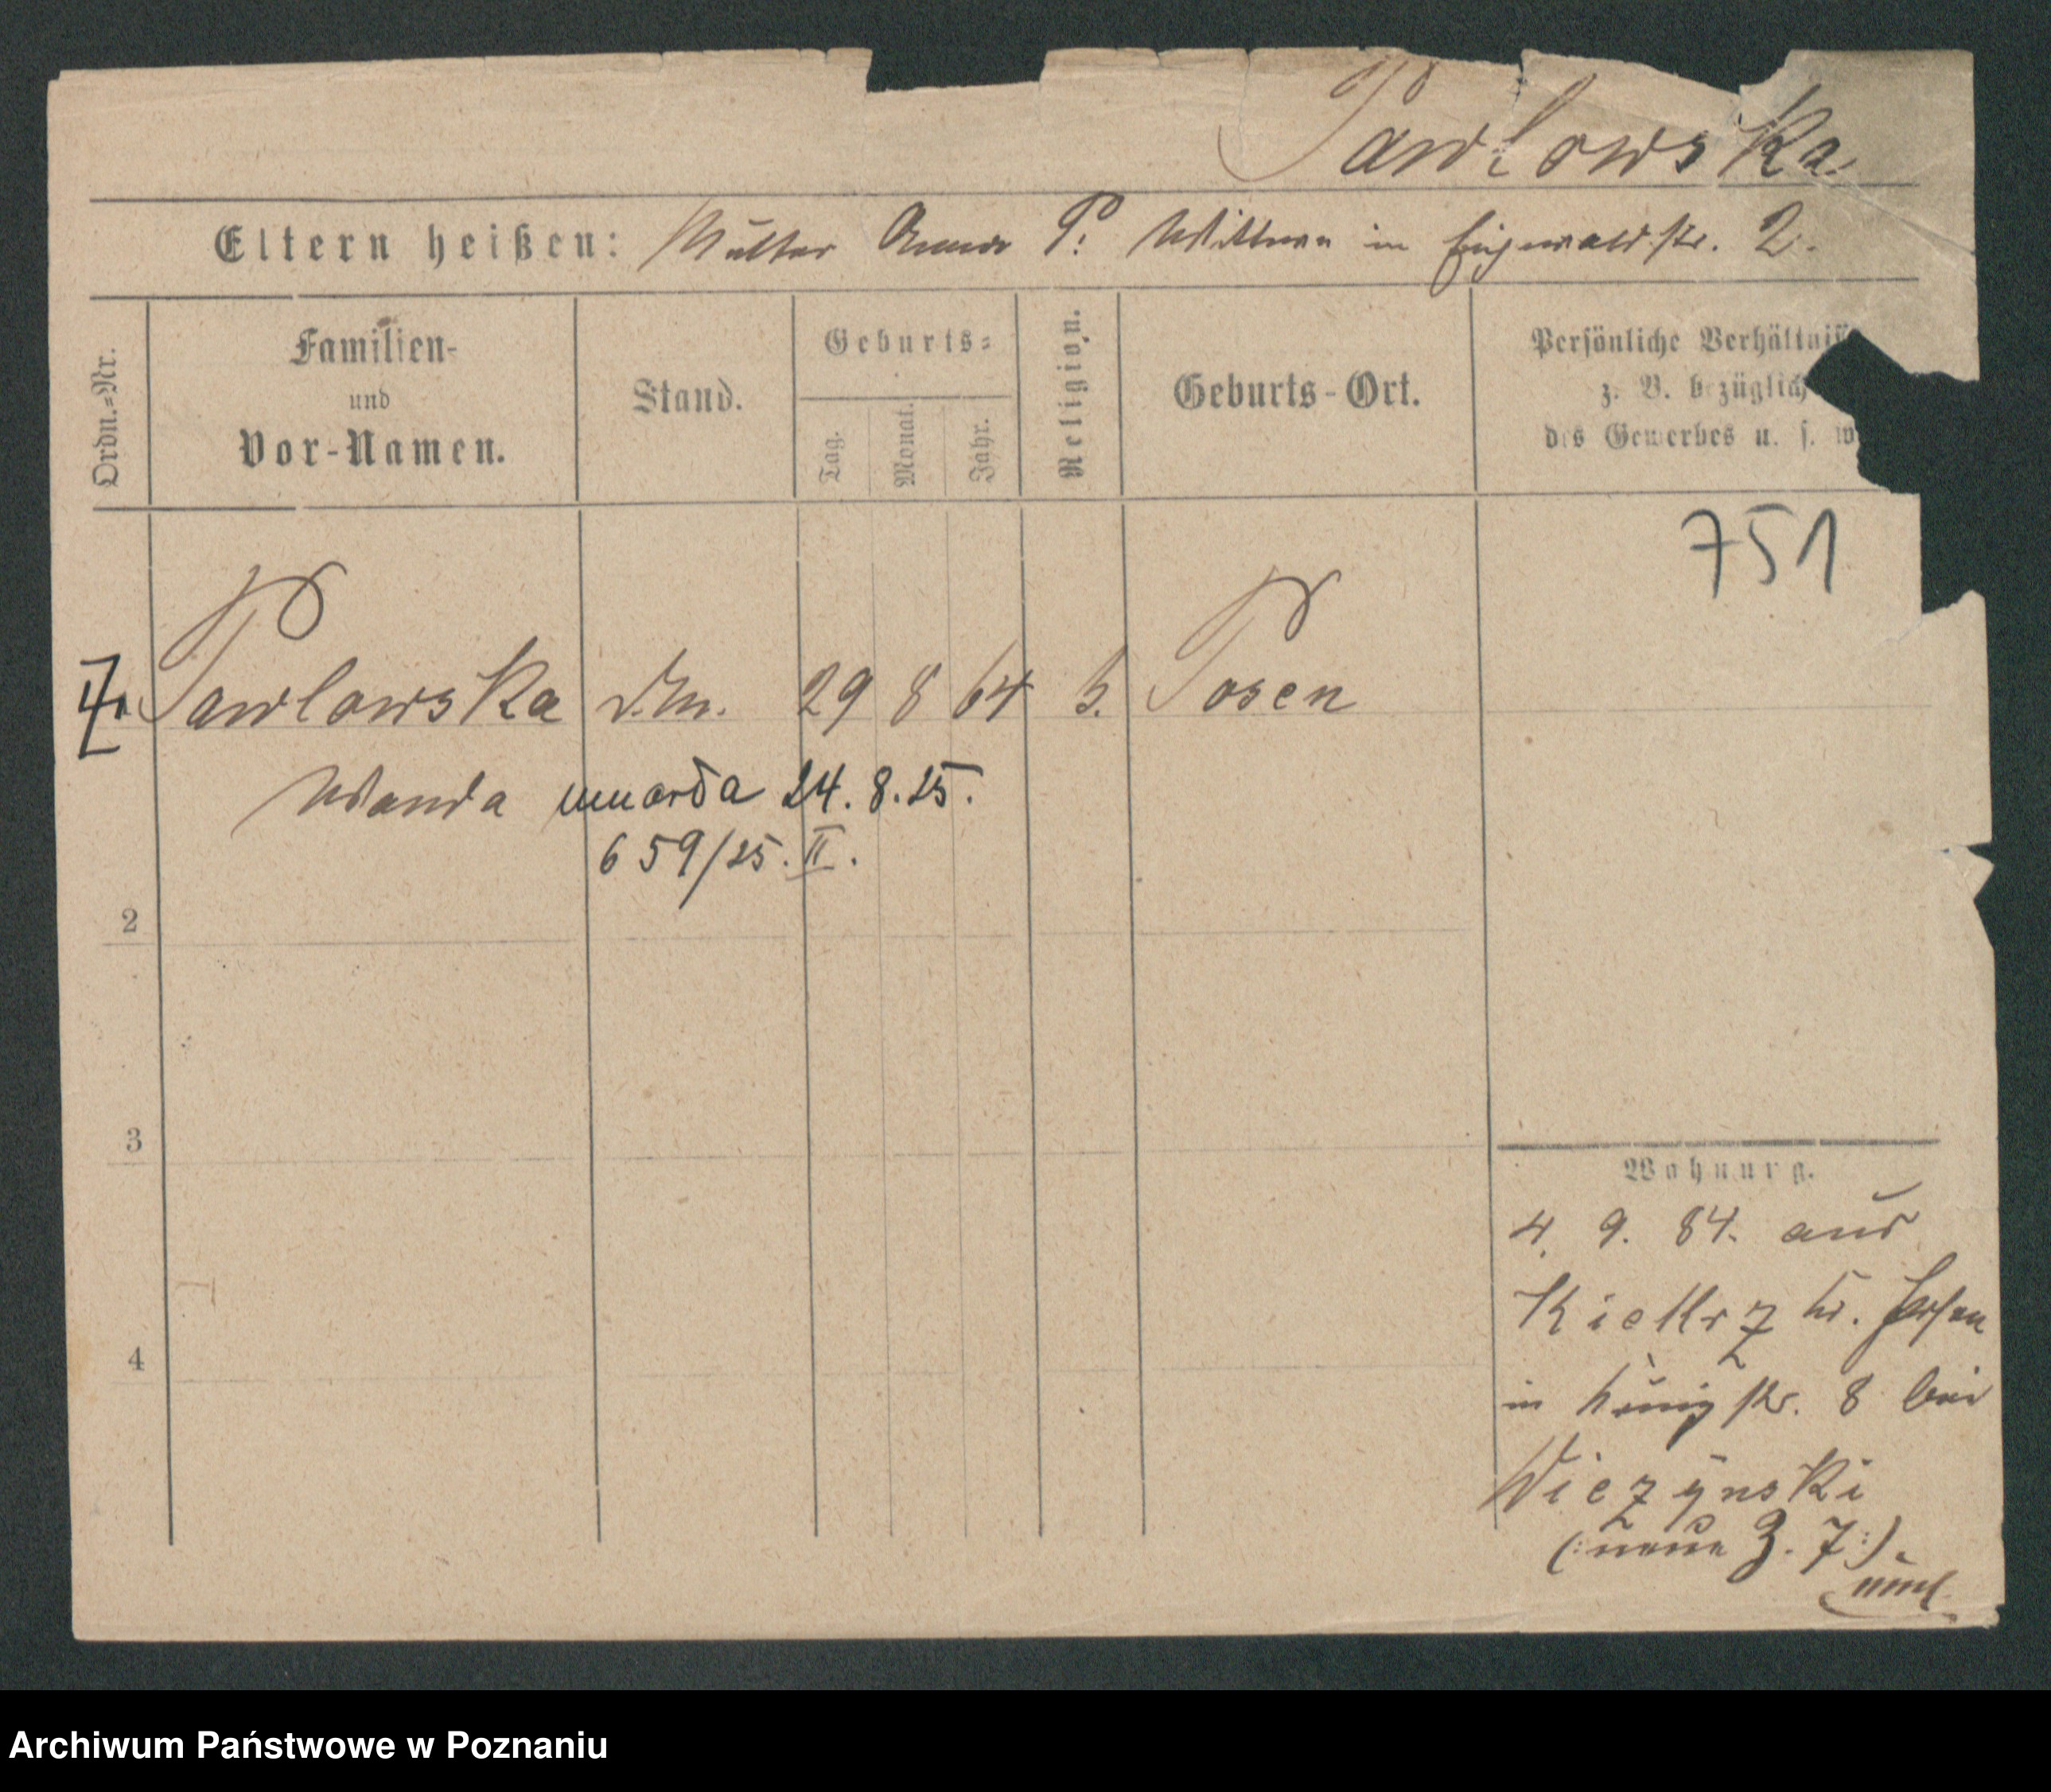 Pawlowska.
Eltern heißen: Mutter Anna P. Wittwe in 2.
Ordn.=Nr.
Familien-
und
Vor-Namen.
Stand.
Geburts=
Tag.
Monat.
Jahr.
Religion.
Geburts-Ort.
Persönliche Verhältni
z. B. bezüglich
des Gewerbes u. s. w
751
Pawlowska D.M. 29 8 64 k. Posen
Wanda umarła 24. 8. 25.
659/25. II.
2
3
4
Wohnung.
4. 9. 84. aus
Kiekrz Kr. Posen
in Königstr. 8 bei
Wiezynski
(: neue Z. 7 :)